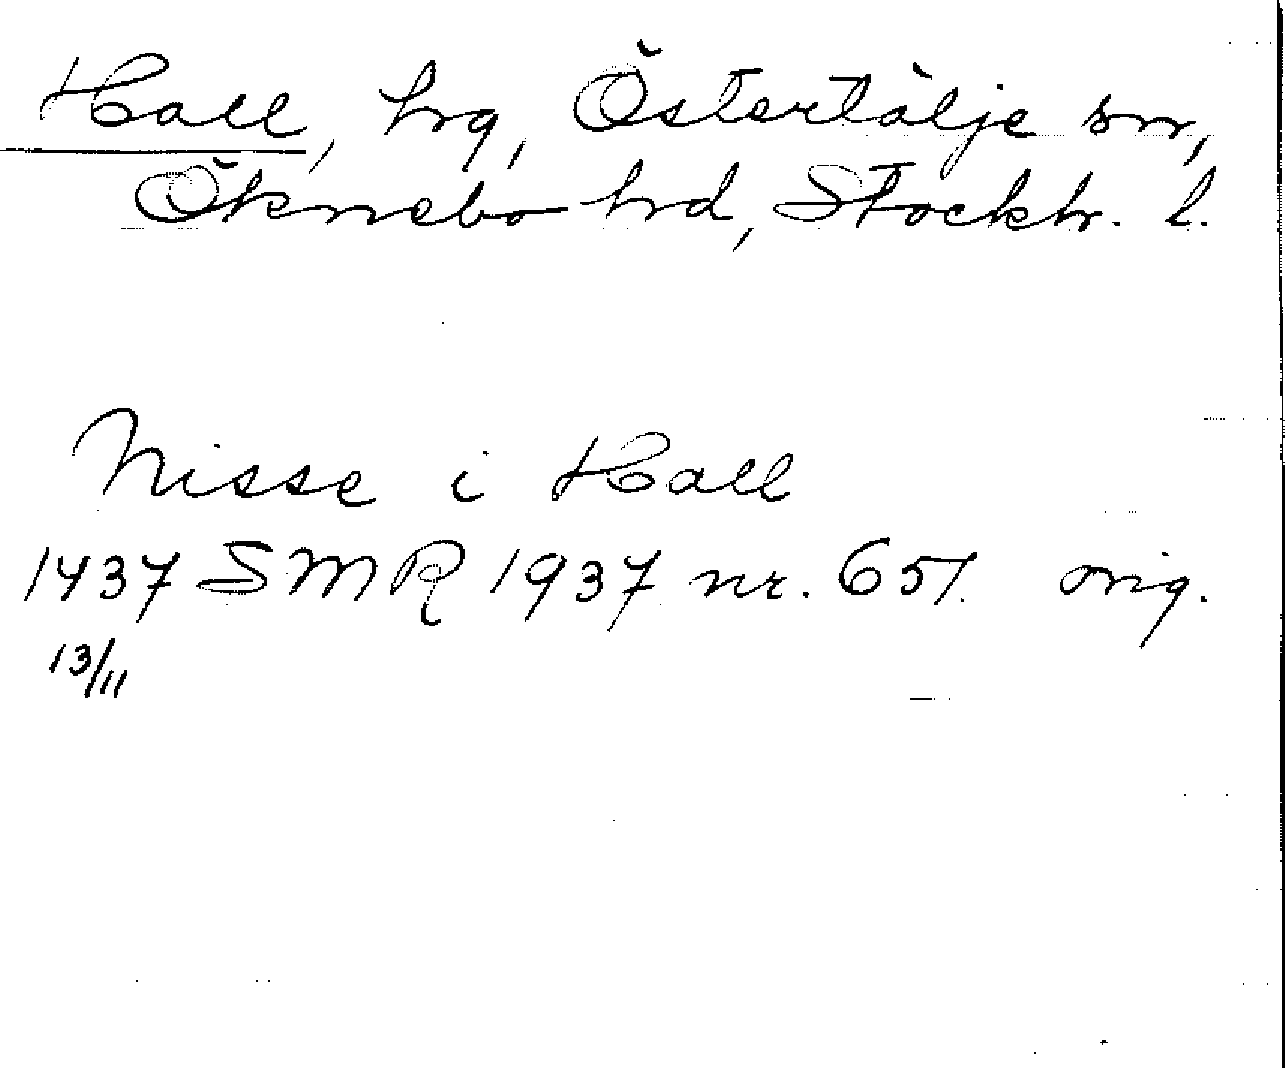 Hall, hg, Östertälje sn,
Öknebo hrd, Stockh. l.
Nisse i Hall
1437 SMR 1937 nr. 651. orig.
13/11